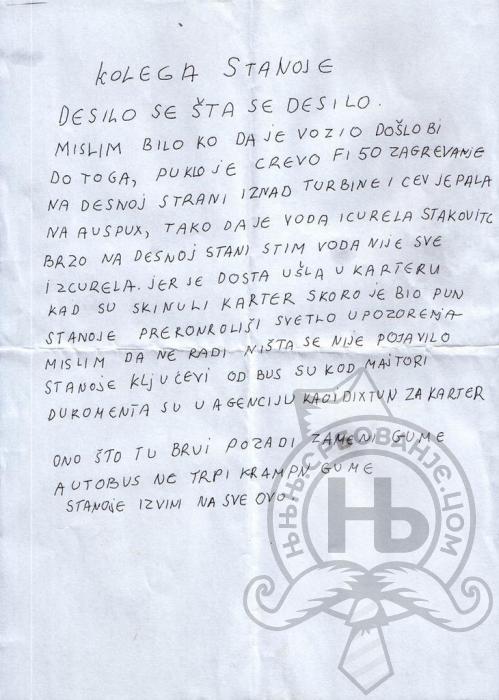 KOLEGA STANOJE
DESILO SE ŠTA SE DESILO.
MISLIM BILO KO DA JE VOZIO DOŠLO BI
DO TOGA, PUKLO JE CREVO FI 50 ZAGREVANJE
NA DESNOJ STRANI IZNAD TURBINE I CEV JE PALA
NA AUSPUX, TAKO DA JE VODA ICURELA
BRZO NA DESNOJ STANI STIM VODA NIJE SVE
IZCURELA. JER JE DOSTA UŠLA U KARTERU
KAD SU SKINULI KARTER SKORO JE BIO PUN
STANOJE SVETLO UPOZORENJA
MISLIM DA NE RADI NIŠTA SE NIJE POJAVILO
STANOJE KLJUČEVI OD BUS SU KOD MAJTORI
DUKOMENTA SU U AGENCIJU KAO I DIXTUN ZA KARTER
ONO ŠTO TU BRVI POZADI ZAMENI GUME
AUTOBUS NE TRPI KRAMPN GUME
STANOJE IZVINI NA SVE OVO
њњњ.србовање.цом
Њ